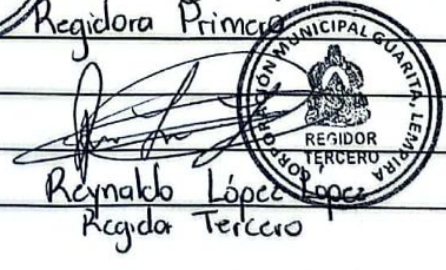 Regidora Primera
CORPORACIÓN MUNICIPAL GUARITA, LEMPIRA
REGIDOR
TERCERO
Reynaldo López López
Regidor Tercero